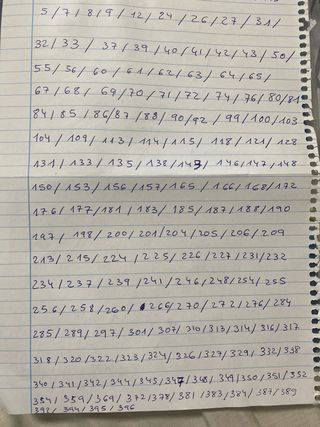 5/7/8/9/12/24/26/27/31/
32/33/37/39/40/41/42/43/50/
55/56/60/61/62/63/64/65/
67/68/69/70/71/72/74/76/80/81
84/85/86/87/88/90/92/99/100/103
104/109/113/114/115/118/121/128
131/133/135/138/143/146/147/148
150/153/156/157/165/166/168/172
176/177/181/183/185/187/188/190
197/198/200/201/204/205/206/209
213/215/224/225/226/227/231/232
234/237/239/241/246/248/254/255
256/258/260/266/270/272/276/284
285/289/297/301/307/310/313/314/316/317
318/320/322/323/324/326/327/329/332/338
340/341/342/344/345/347/348/349/350/351/352
354/359/369/372/378/381/383/384/387/389
392/394/395/396